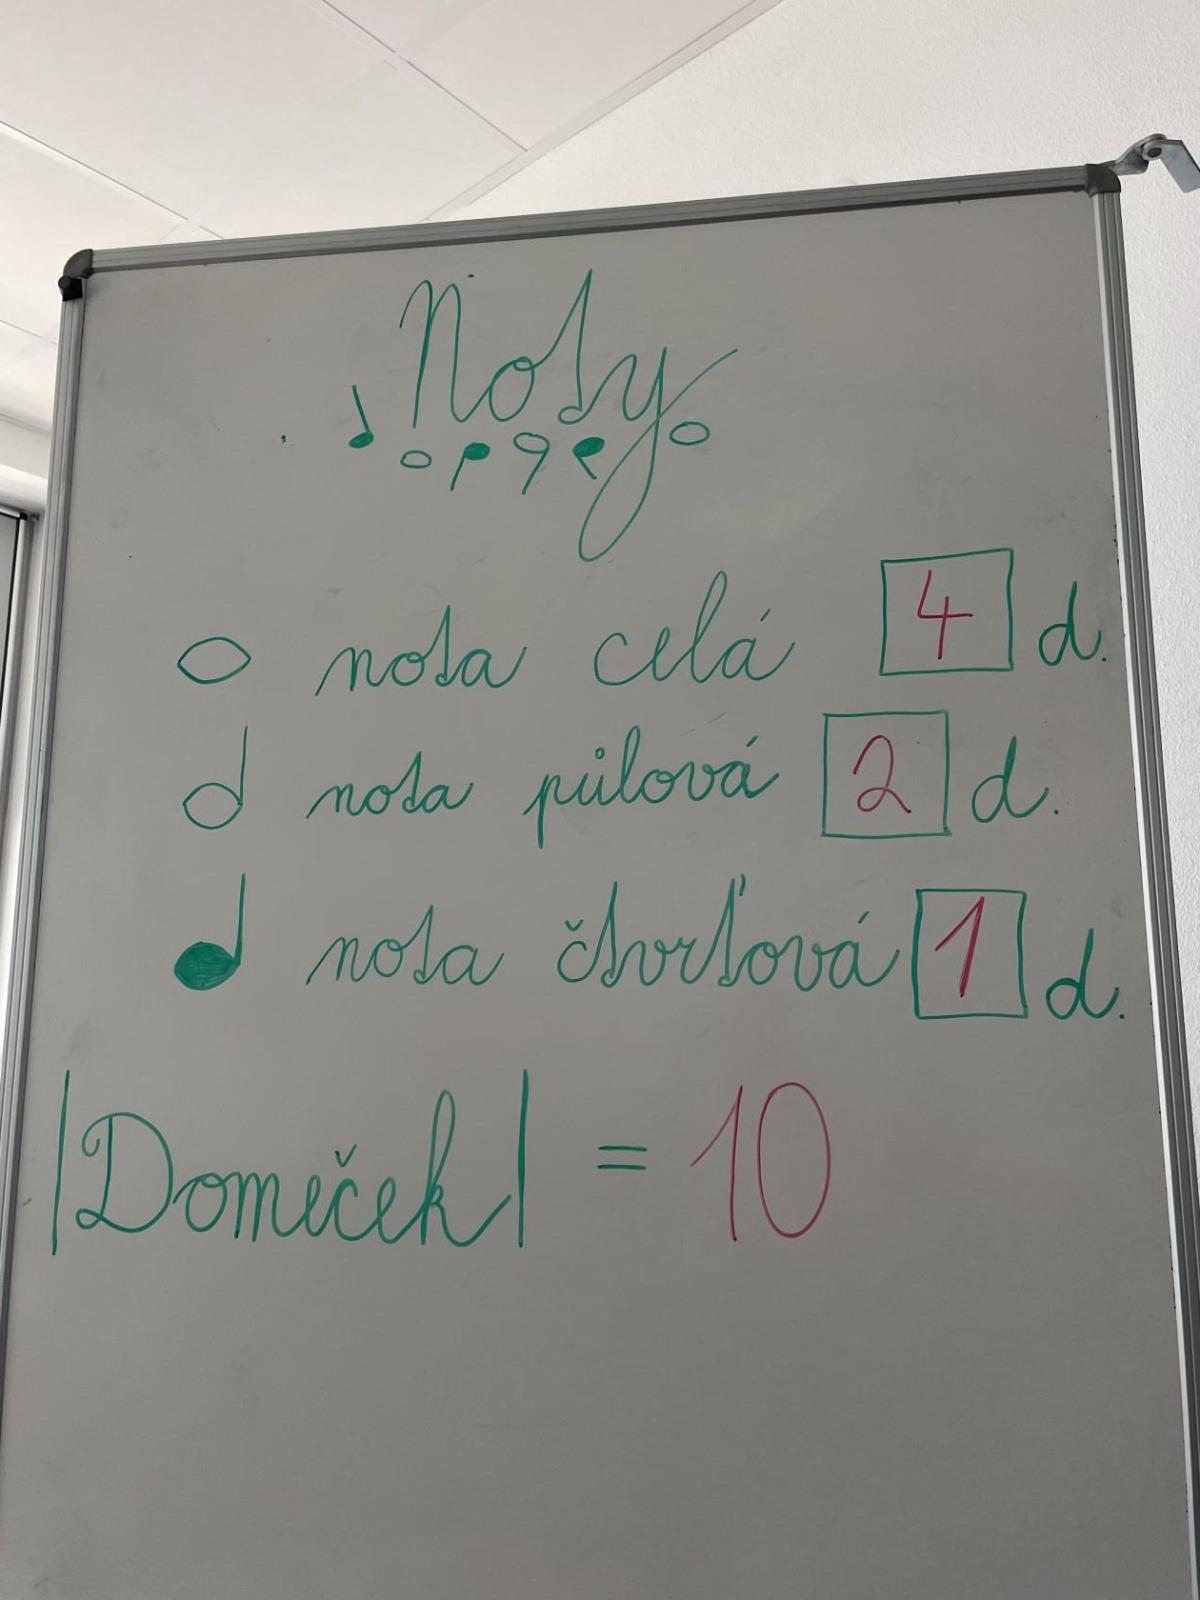 Noty
nota celá 4 d.
nota půlová 2 d.
nota čtvrťová 1 d.
|Domeček| = 10